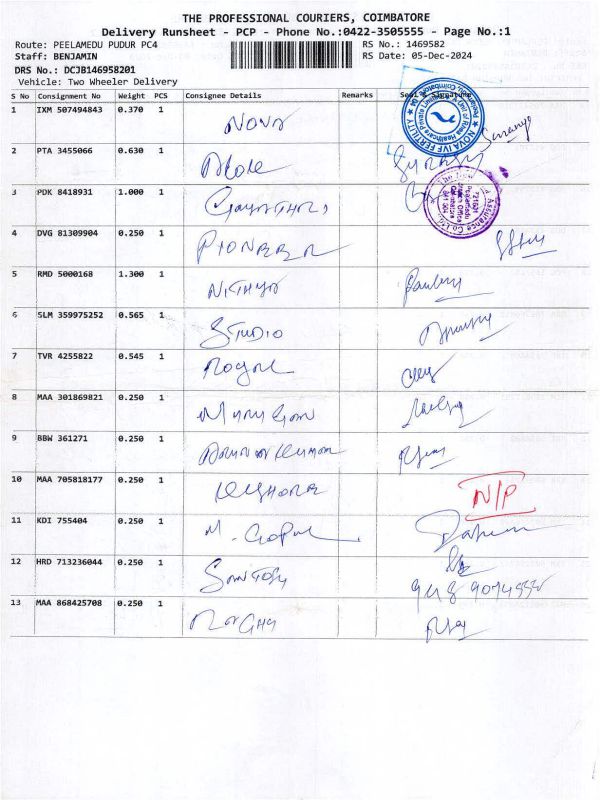 THE PROFESSIONAL COURIERS, COIMBATORE
Delivery Runsheet - PCP - Phone No.:0422-3505555 - Page No.:1
Route: PEELAMEDU PUDUR PC4 RS No.: 1469582
Staff: BENJAMIN RS Date: 05-Dec-2024
DRS No.: DCJB146958201
Vehicle: Two Wheeler Delivery
S No Consignment No Weight PCS Consignee Details Remarks Seal & Signature
1 IXM 507494843 0.370 1 NOVA
NOVA IVF FERTILITY
2 PTA 3455066 0.630 1
3 PDK 8418931 1.000 1 GAYATHRI
4 DVG 81309904 0.250 1 PIONEER
5 RMD 5000168 1.300 1 NITHYA
6 SLM 359975252 0.565 1 STUDIO
7 TVR 4255822 0.545 1 Royal
8 MAA 301869821 0.250 1 Murugan
9 BBW 361271 0.250 1 Arun Kumar
10 MAA 705818177 0.250 1 KISHORE N/P
11 KDI 755404 0.250 1 M. Gopal
12 HRD 713236044 0.250 1 Santosh
13 MAA 868425708 0.250 1